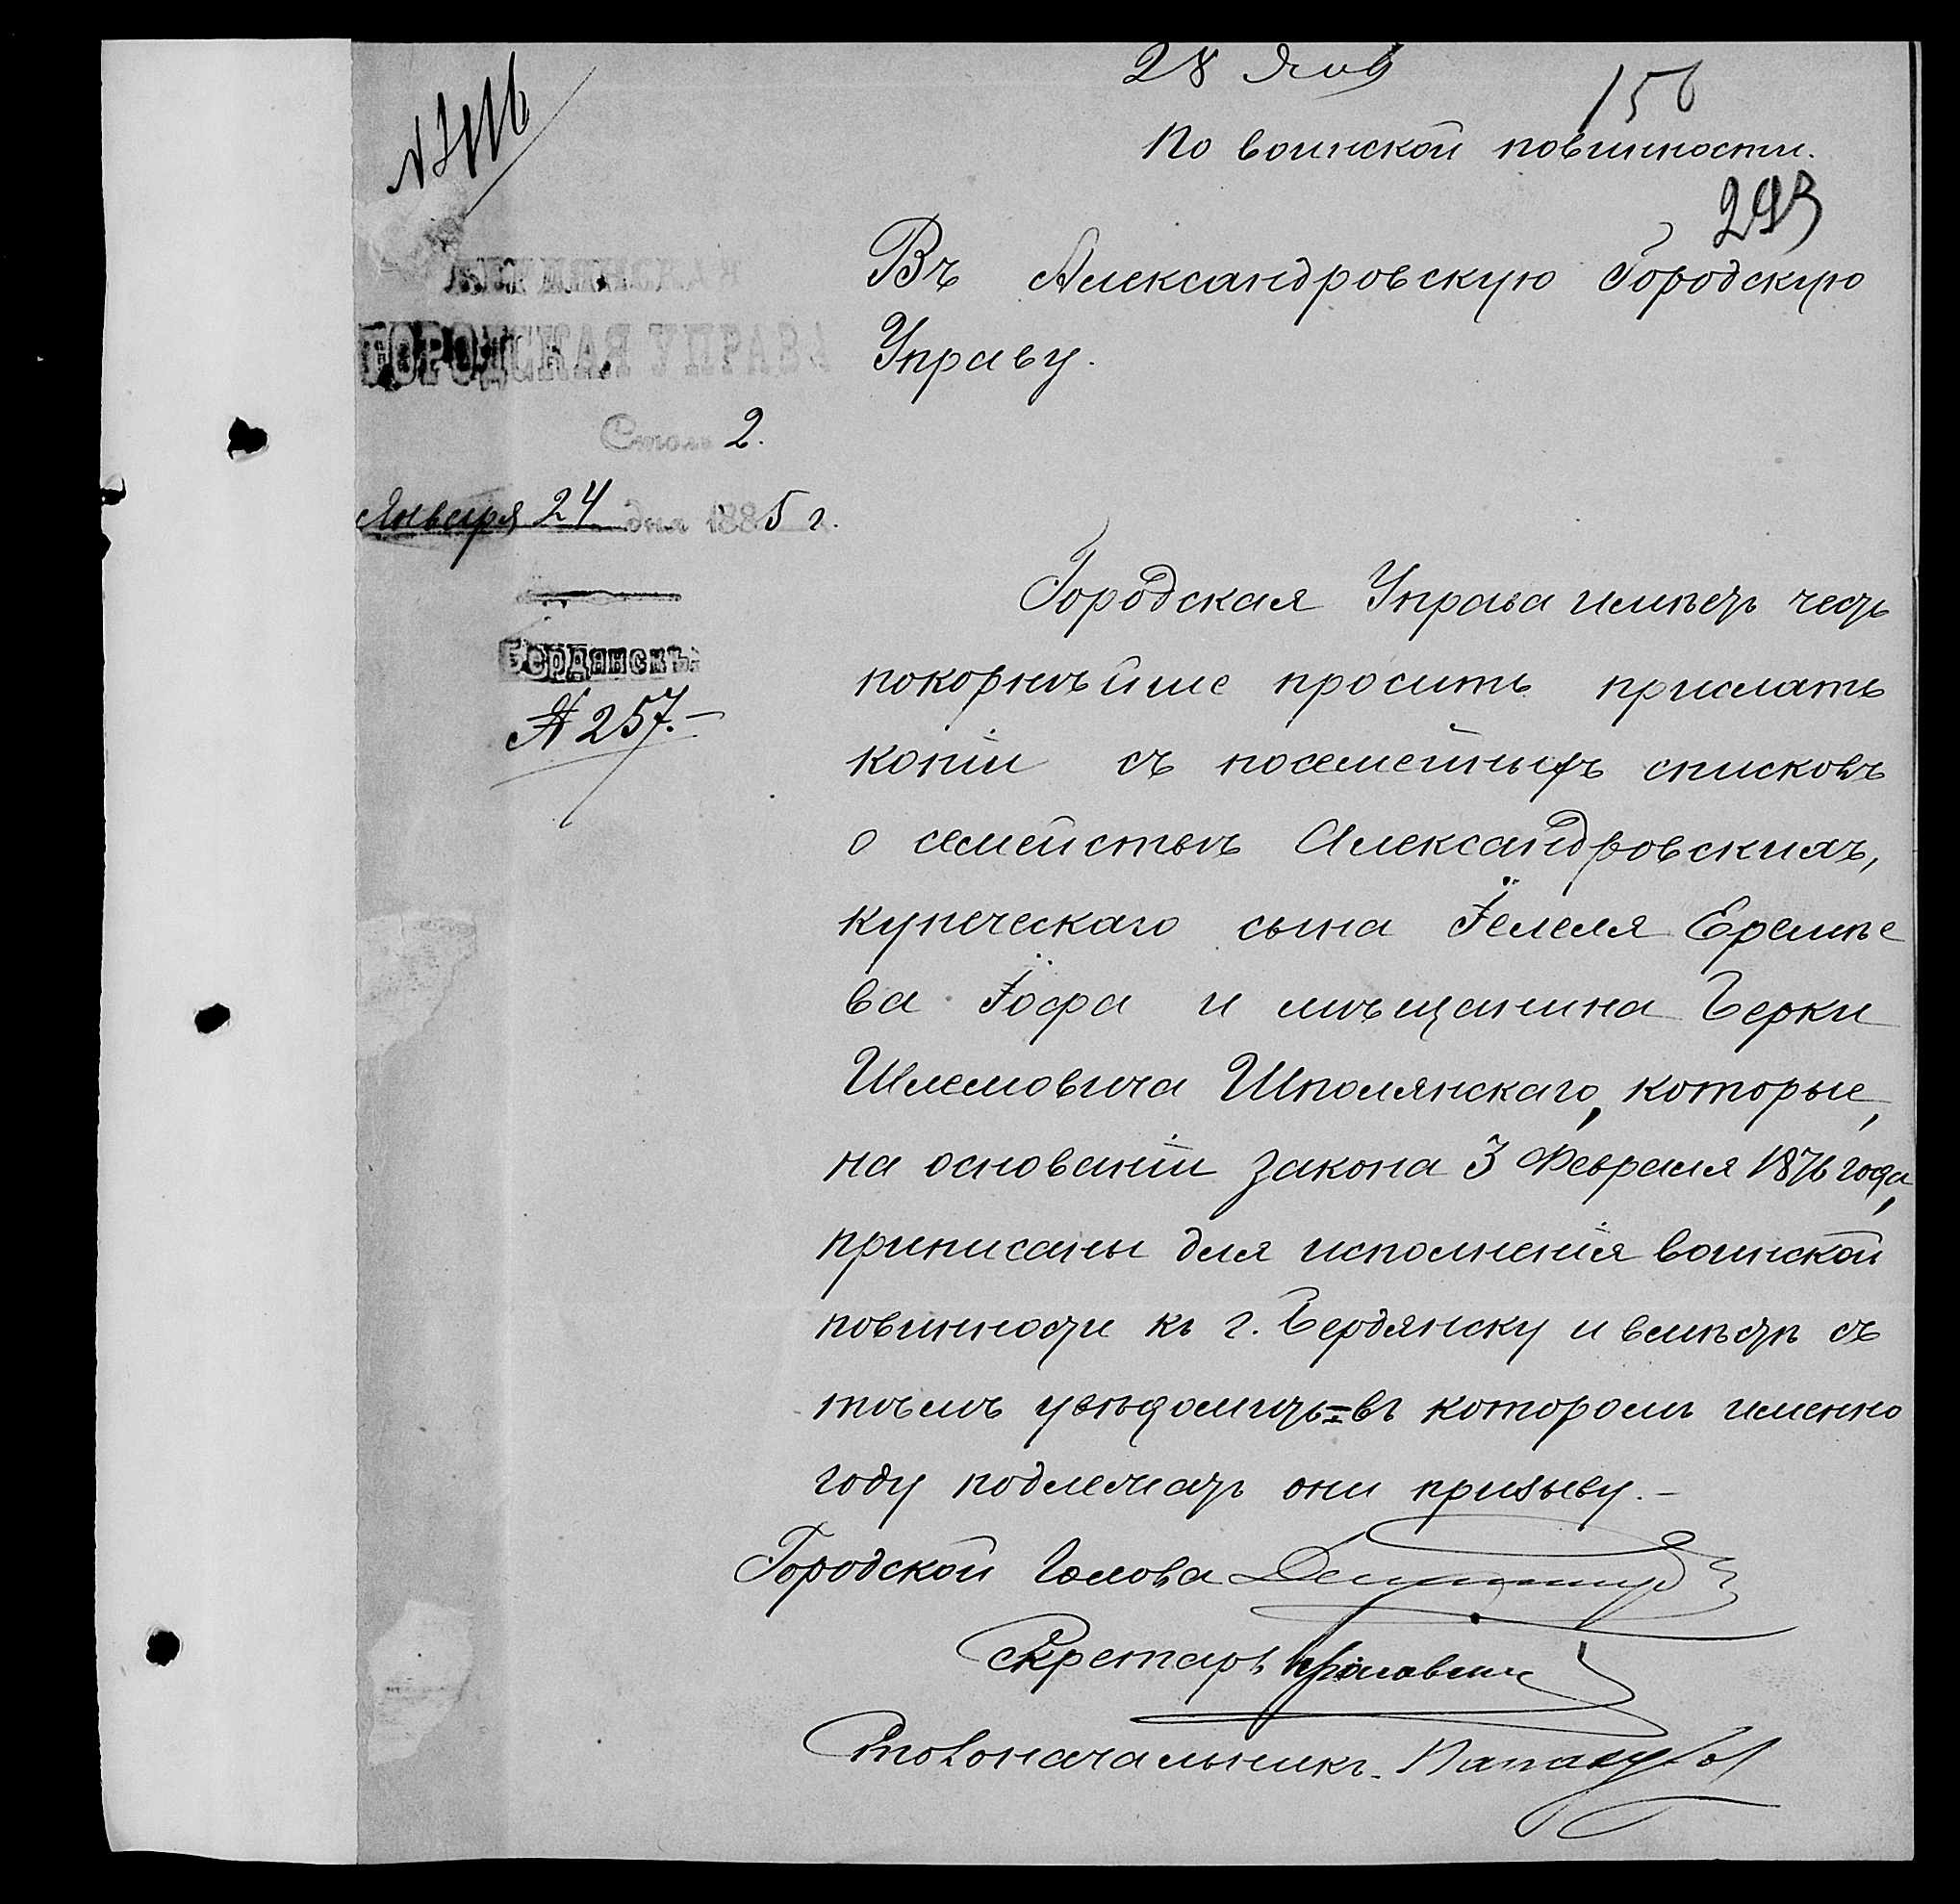 28 Янв
150
По воинской повинности.
293
Въ Александровскую Городскую
Управу.
ГОРОДСКАЯ УПРАВА
Столъ 2.
Января 24 дня 1885 г.
Бердянскъ
№ 257.—
Городская Управа имѣетъ честь
покорнѣйше просить прислать
копіи съ посемейныхъ списковъ
о семействѣ Александровскихъ,
купеческаго сына Іелеля Еремѣе
ва Іофа и мѣщанина Берки
Шлемовича Шполянскаго, которые,
на основаніи закона 3 Февраля 1876 года,
приписаны для исполненія воинской
повинности къ г. Бердянску и вмѣстѣ съ
тѣмъ увѣдомить=въ которомъ именно
году подлежатъ они призыву.—
Городской Голова
Секретарь
Столоначальникъ